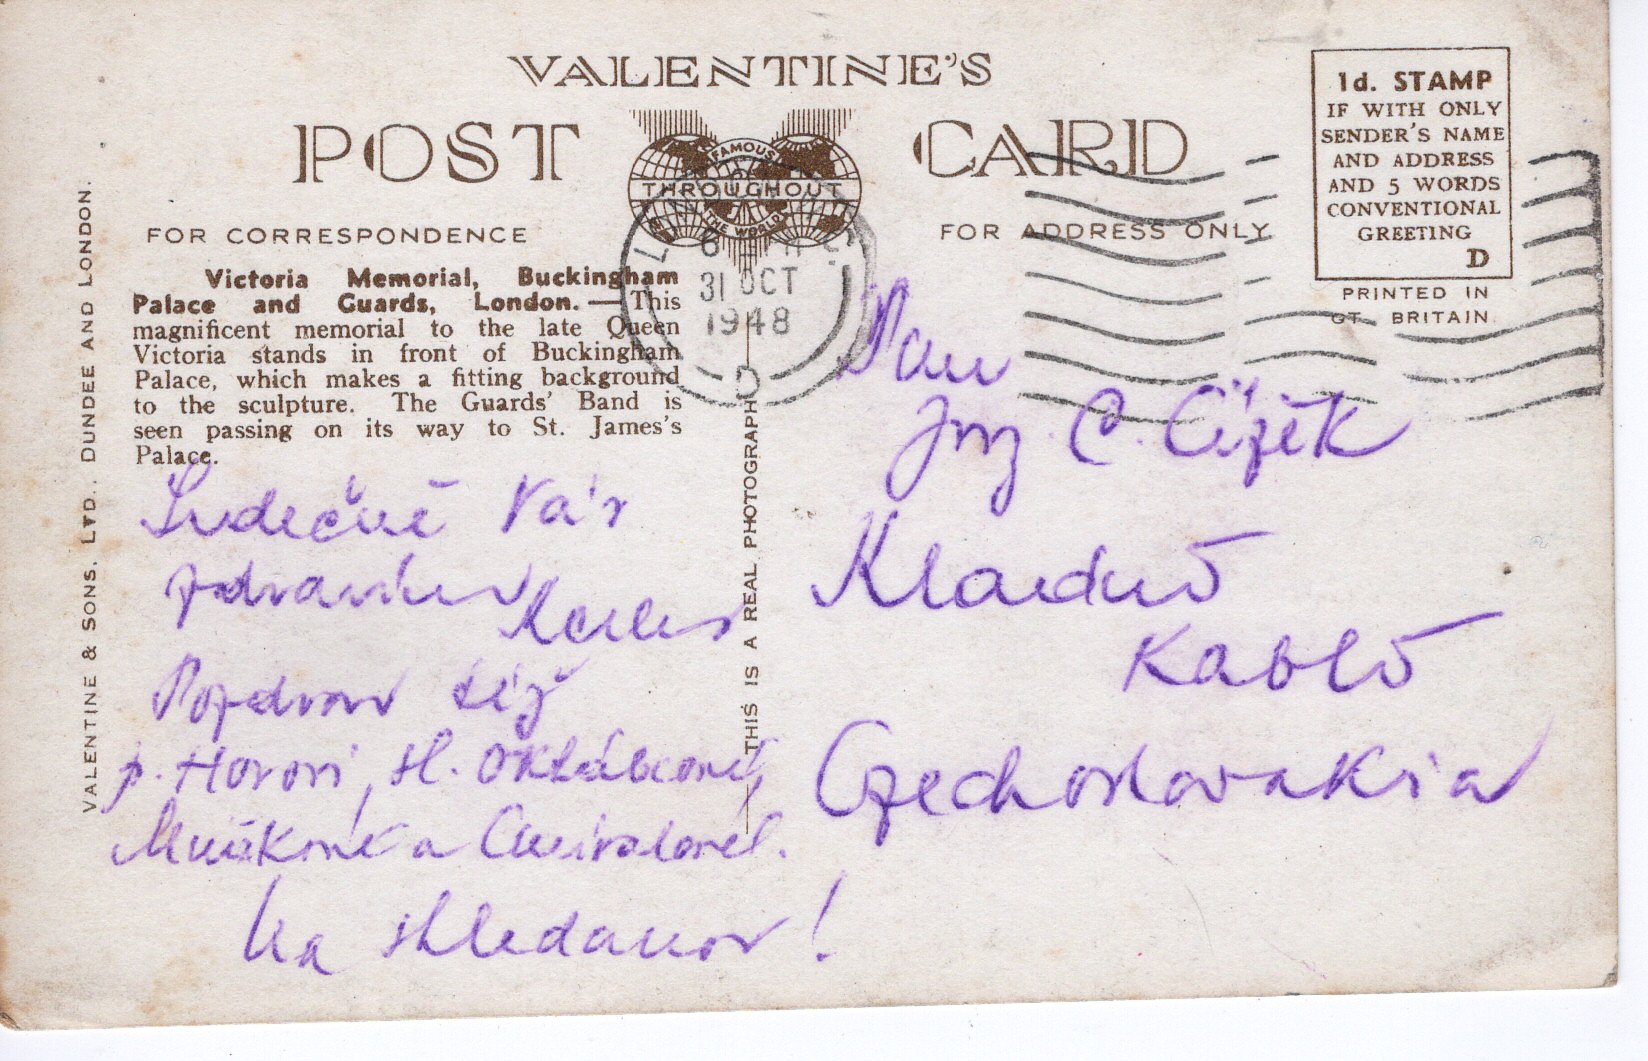 VALENTINE'S
POST CARD
FAMOUS
THROUGHOUT
THE WORLD
FOR CORRESPONDENCE
FOR ADDRESS ONLY
1d. STAMP
IF WITH ONLY
SENDER'S NAME
AND ADDRESS
AND 5 WORDS
CONVENTIONAL
GREETING
D
PRINTED IN
GT. BRITAIN.
31 OCT
1948
D
Victoria Memorial, Buckingham
Palace and Guards, London.—This
magnificent memorial to the late Queen
Victoria stands in front of Buckingham
Palace, which makes a fitting background
to the sculpture. The Guards' Band is
seen passing on its way to St. James's
Palace.
VALENTINE & SONS. LTD., DUNDEE AND LONDON.
THIS IS A REAL PHOTOGRAPH
Srdečně Vás
zdravím
Pozdrav též
p. Horovi, sl.
a
Na shledanou!
Pan
Ing. C. Čížek
Kladno
Kablo
Czechoslovakia